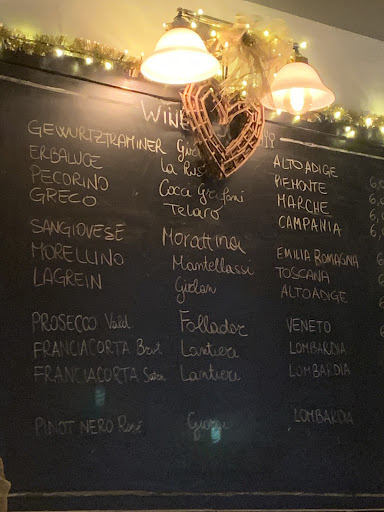 WINE
GEWURTZTRAMINER ALTO ADIGE
ERBALUCE La PIEMONTE 6,
PECORINO Cocci Grifoni MARCHE 6,
GRECO Telaro CAMPANIA 6,
SANGIOVESE Morattina EMILIA ROMAGNA
MORELLINO Mantellassi TOSCANA
LAGREIN Girlan ALTO ADIGE
PROSECCO Vald Follador VENETO
FRANCIACORTA Brut Lantieri LOMBARDIA
FRANCIACORTA Saten Lantieri LOMBARDIA
PINOT NERO Rosé LOMBARDIA